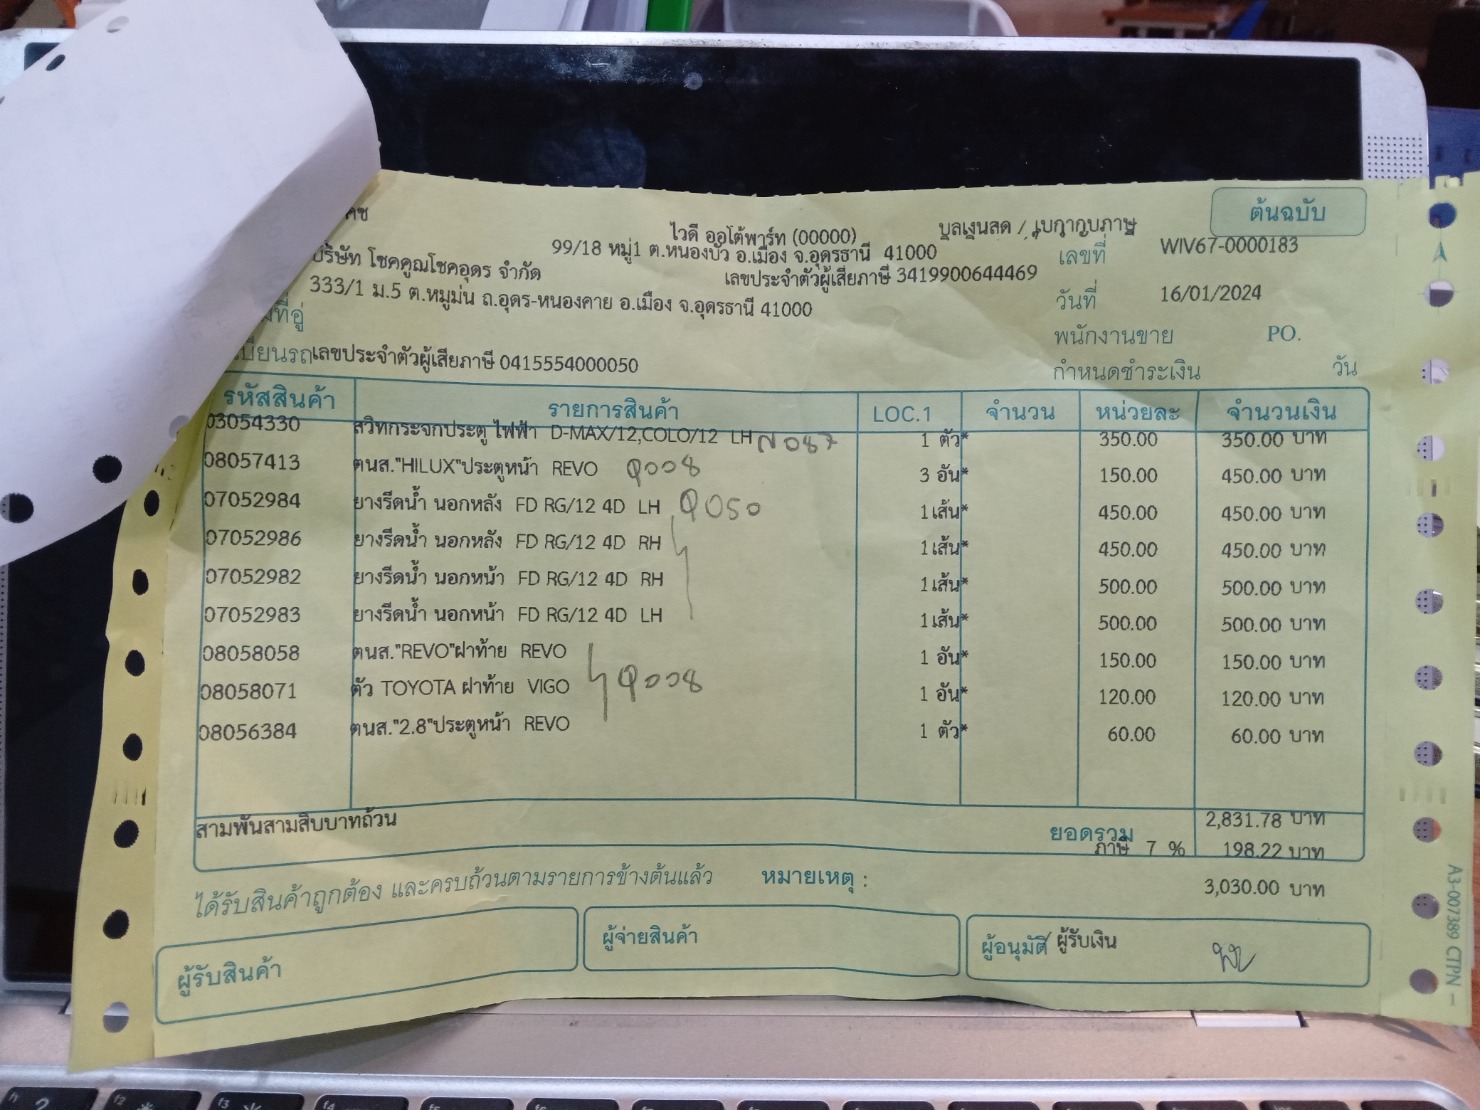 ต้นฉบับ
ไวดี ออโต้พาร์ท (00000)
บิลเงินสด / ใบกำกับภาษี
99/18 หมู่1 ต.หนองบัว อ.เมือง จ.อุดรธานี 41000
เลขที่ WIV67-0000183
บริษัท โชคคูณโชคอุดร จำกัด
เลขประจำตัวผู้เสียภาษี 3419900644469
333/1 ม.5 ต.หมูม่น ถ.อุดร-หนองคาย อ.เมือง จ.อุดรธานี 41000
วันที่ 16/01/2024
ที่อยู่
พนักงานขาย PO.
เลขประจำตัวผู้เสียภาษี 0415554000050
กำหนดชำระเงิน วัน
รหัสสินค้า รายการสินค้า LOC.1 จำนวน หน่วยละ จำนวนเงิน
03054330 สวิทกระจกประตู ไฟฟ้า D-MAX/12,COLO/12 LH N087 1 ตัว* 350.00 350.00 บาท
08057413 ตนส."HILUX"ประตูหน้า REVO Q008 3 อัน* 150.00 450.00 บาท
07052984 ยางรีดน้ำ นอกหลัง FD RG/12 4D LH Q050 1 เส้น* 450.00 450.00 บาท
07052986 ยางรีดน้ำ นอกหลัง FD RG/12 4D RH 1 เส้น* 450.00 450.00 บาท
07052982 ยางรีดน้ำ นอกหน้า FD RG/12 4D RH 1 เส้น* 500.00 500.00 บาท
07052983 ยางรีดน้ำ นอกหน้า FD RG/12 4D LH 1 เส้น* 500.00 500.00 บาท
08058058 ตนส."REVO"ฝาท้าย REVO 1 อัน* 150.00 150.00 บาท
08058071 ตัว TOYOTA ฝาท้าย VIGO Q008 1 อัน* 120.00 120.00 บาท
08056384 ตนส."2.8"ประตูหน้า REVO 1 ตัว* 60.00 60.00 บาท
สามพันสามสิบบาทถ้วน ยอดรวม 2,831.78 บาท
ภาษี 7 % 198.22 บาท
ได้รับสินค้าถูกต้อง และครบถ้วนตามรายการข้างต้นแล้ว หมายเหตุ : 3,030.00 บาท
ผู้รับสินค้า ผู้จ่ายสินค้า ผู้อนุมัติ ผู้รับเงิน
A3-007389 CTPN -